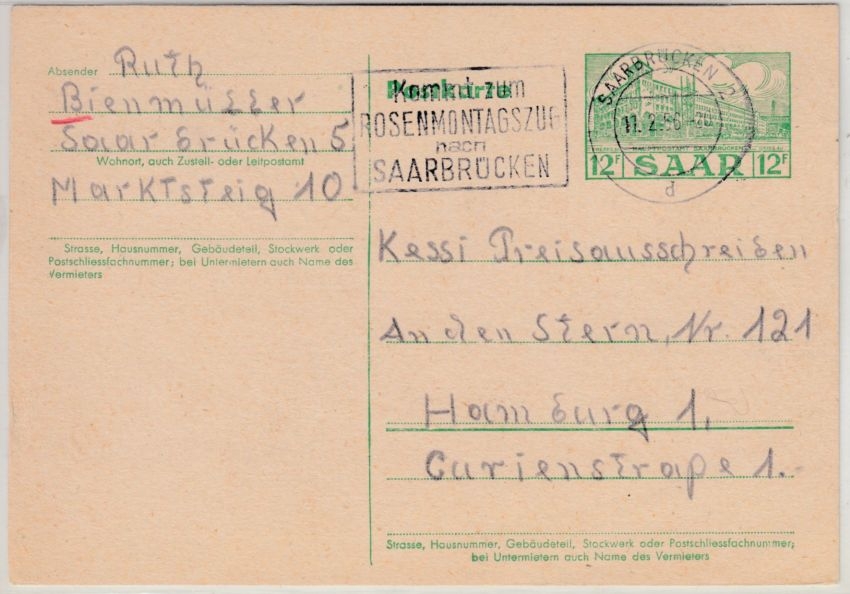 Absender Ruth
Bienmüller
Saarbrücken 5
Wohnort, auch Zustell- oder Leitpostamt
Marktsteig 10
Strasse, Hausnummer, Gebäudeteil, Stockwerk oder
Postschliessfachnummer; bei Untermietern auch Name des
Vermieters
Postkarte
Kommt zum
ROSENMONTAGSZUG
nach
SAARBRÜCKEN
SAARBRÜCKEN 2
11.2.56
d
HAUPTPOSTAMT SAARBRÜCKEN
12F SAAR 12F
Kessi Preisausschreiben
An den Stern, Nr. 121
Hamburg 1,
Curienstraße 1.
Strasse, Hausnummer, Gebäudeteil, Stockwerk oder Postschliessfachnummer;
bei Untermietern auch Name des Vermieters